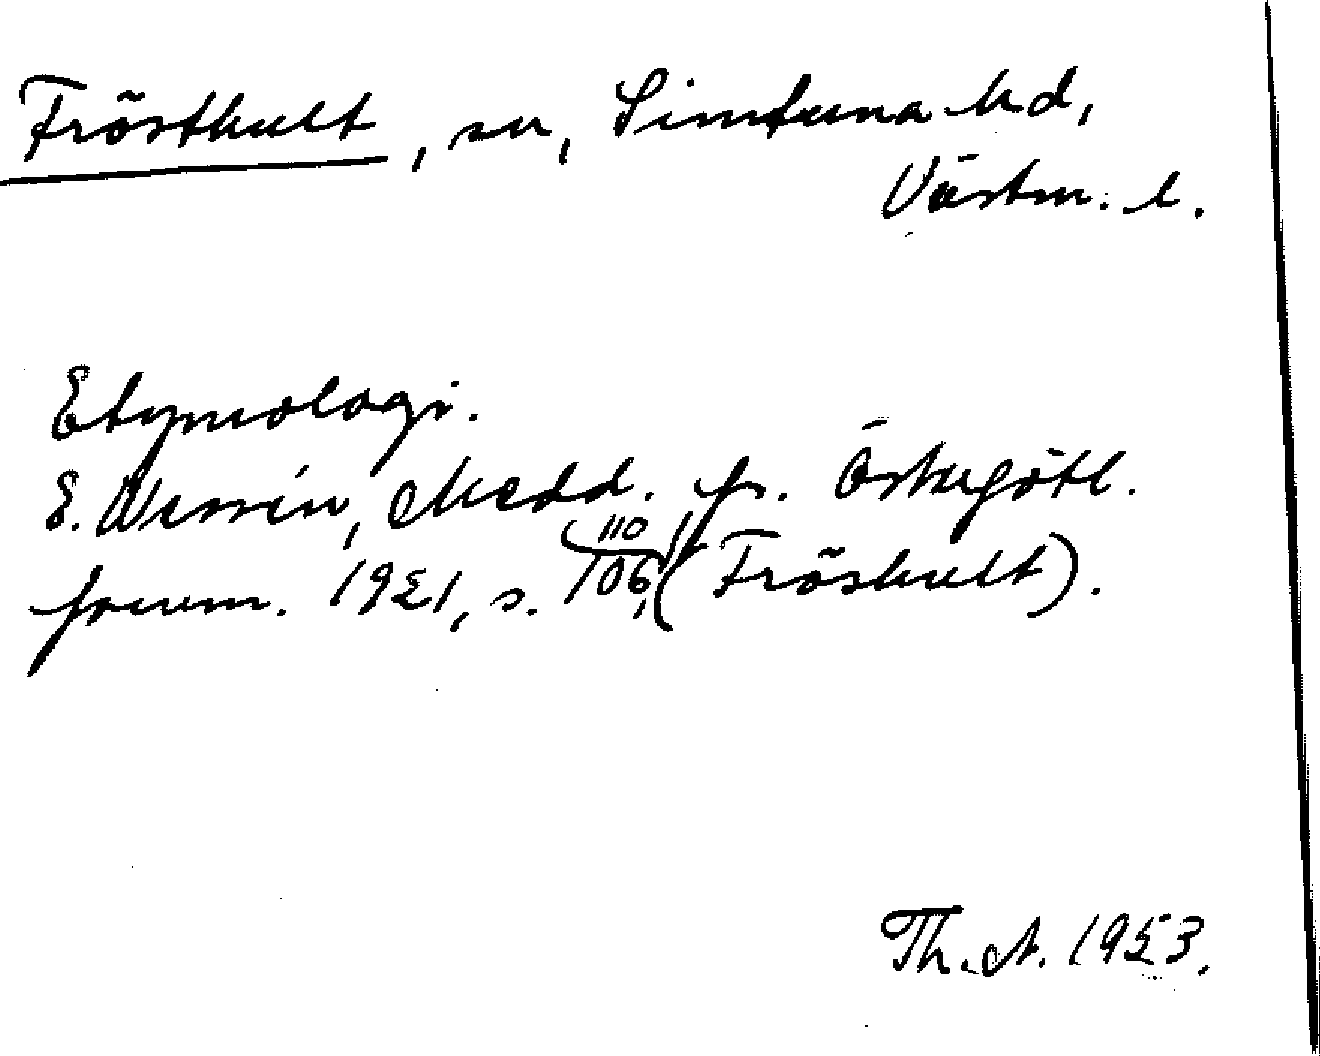 Frösthult, sn, Simtuna hd,
Västm. l.
Etymologi.
E. Wessén, Medd. fr. Östergötl.
fornm. 1921, s. 106, (Fröshult).
110
Th. A. 1923.